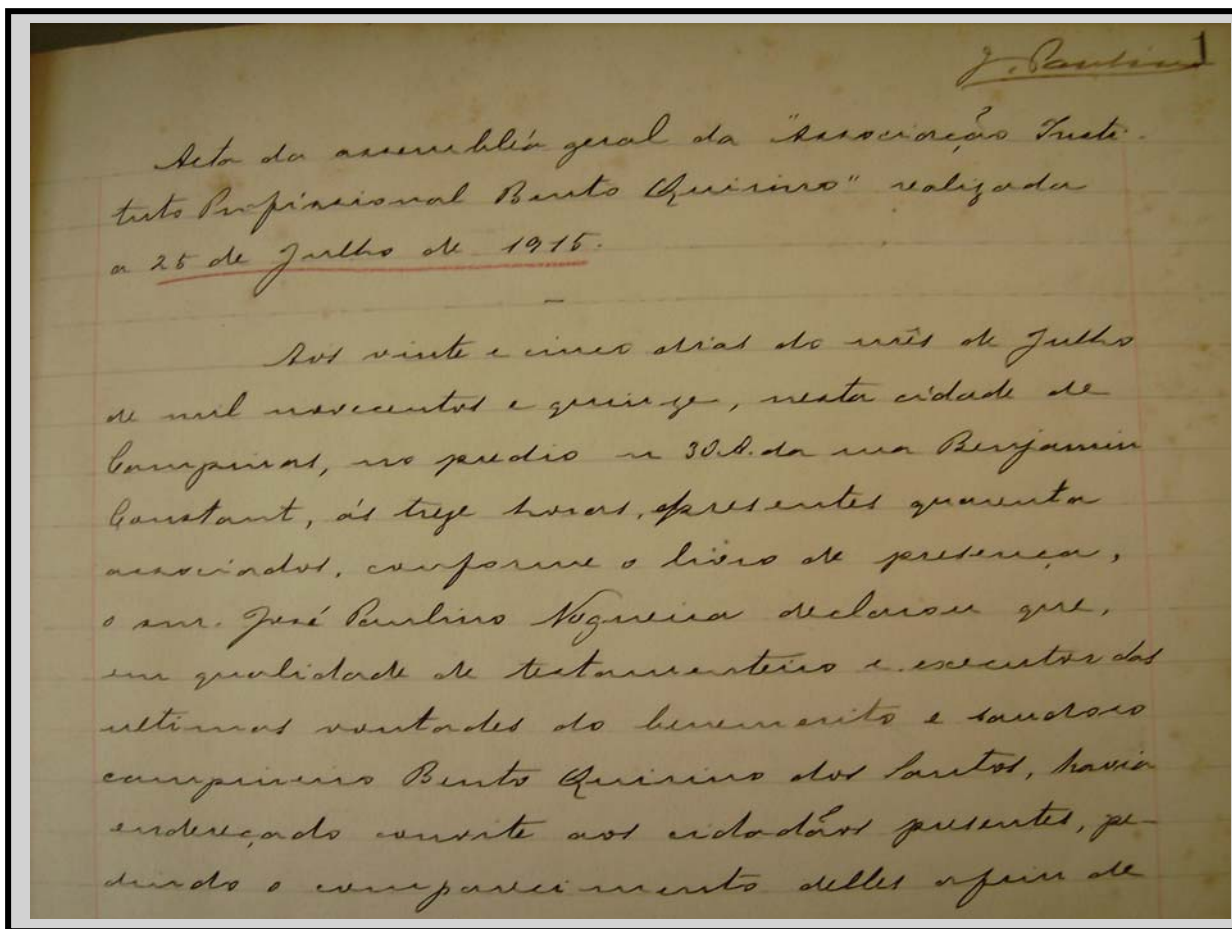 1
J. Paulino
Acta da assembléa geral da "Associação Insti-
tuto Profissional Bento Quirino" realizada
a 25 de Julho de 1915.
Aos vinte e cinco dias do mês de Julho
de mil novecentos e quinze, nesta cidade de
Campinas, no predio n 30.A. da rua Benjamin
Constant, ás treze horas, presentes quarenta
associados, conforme o livro de presença,
o snr. José Paulino Nogueira declarou que,
em qualidade de testamenteiro e executor das
ultimas vontades do benemerito e saudoso
campineiro Bento Quirino dos Santos, havia
endereçado convite aos cidadãos presentes, pe-
dindo o comparecimento delles afim de